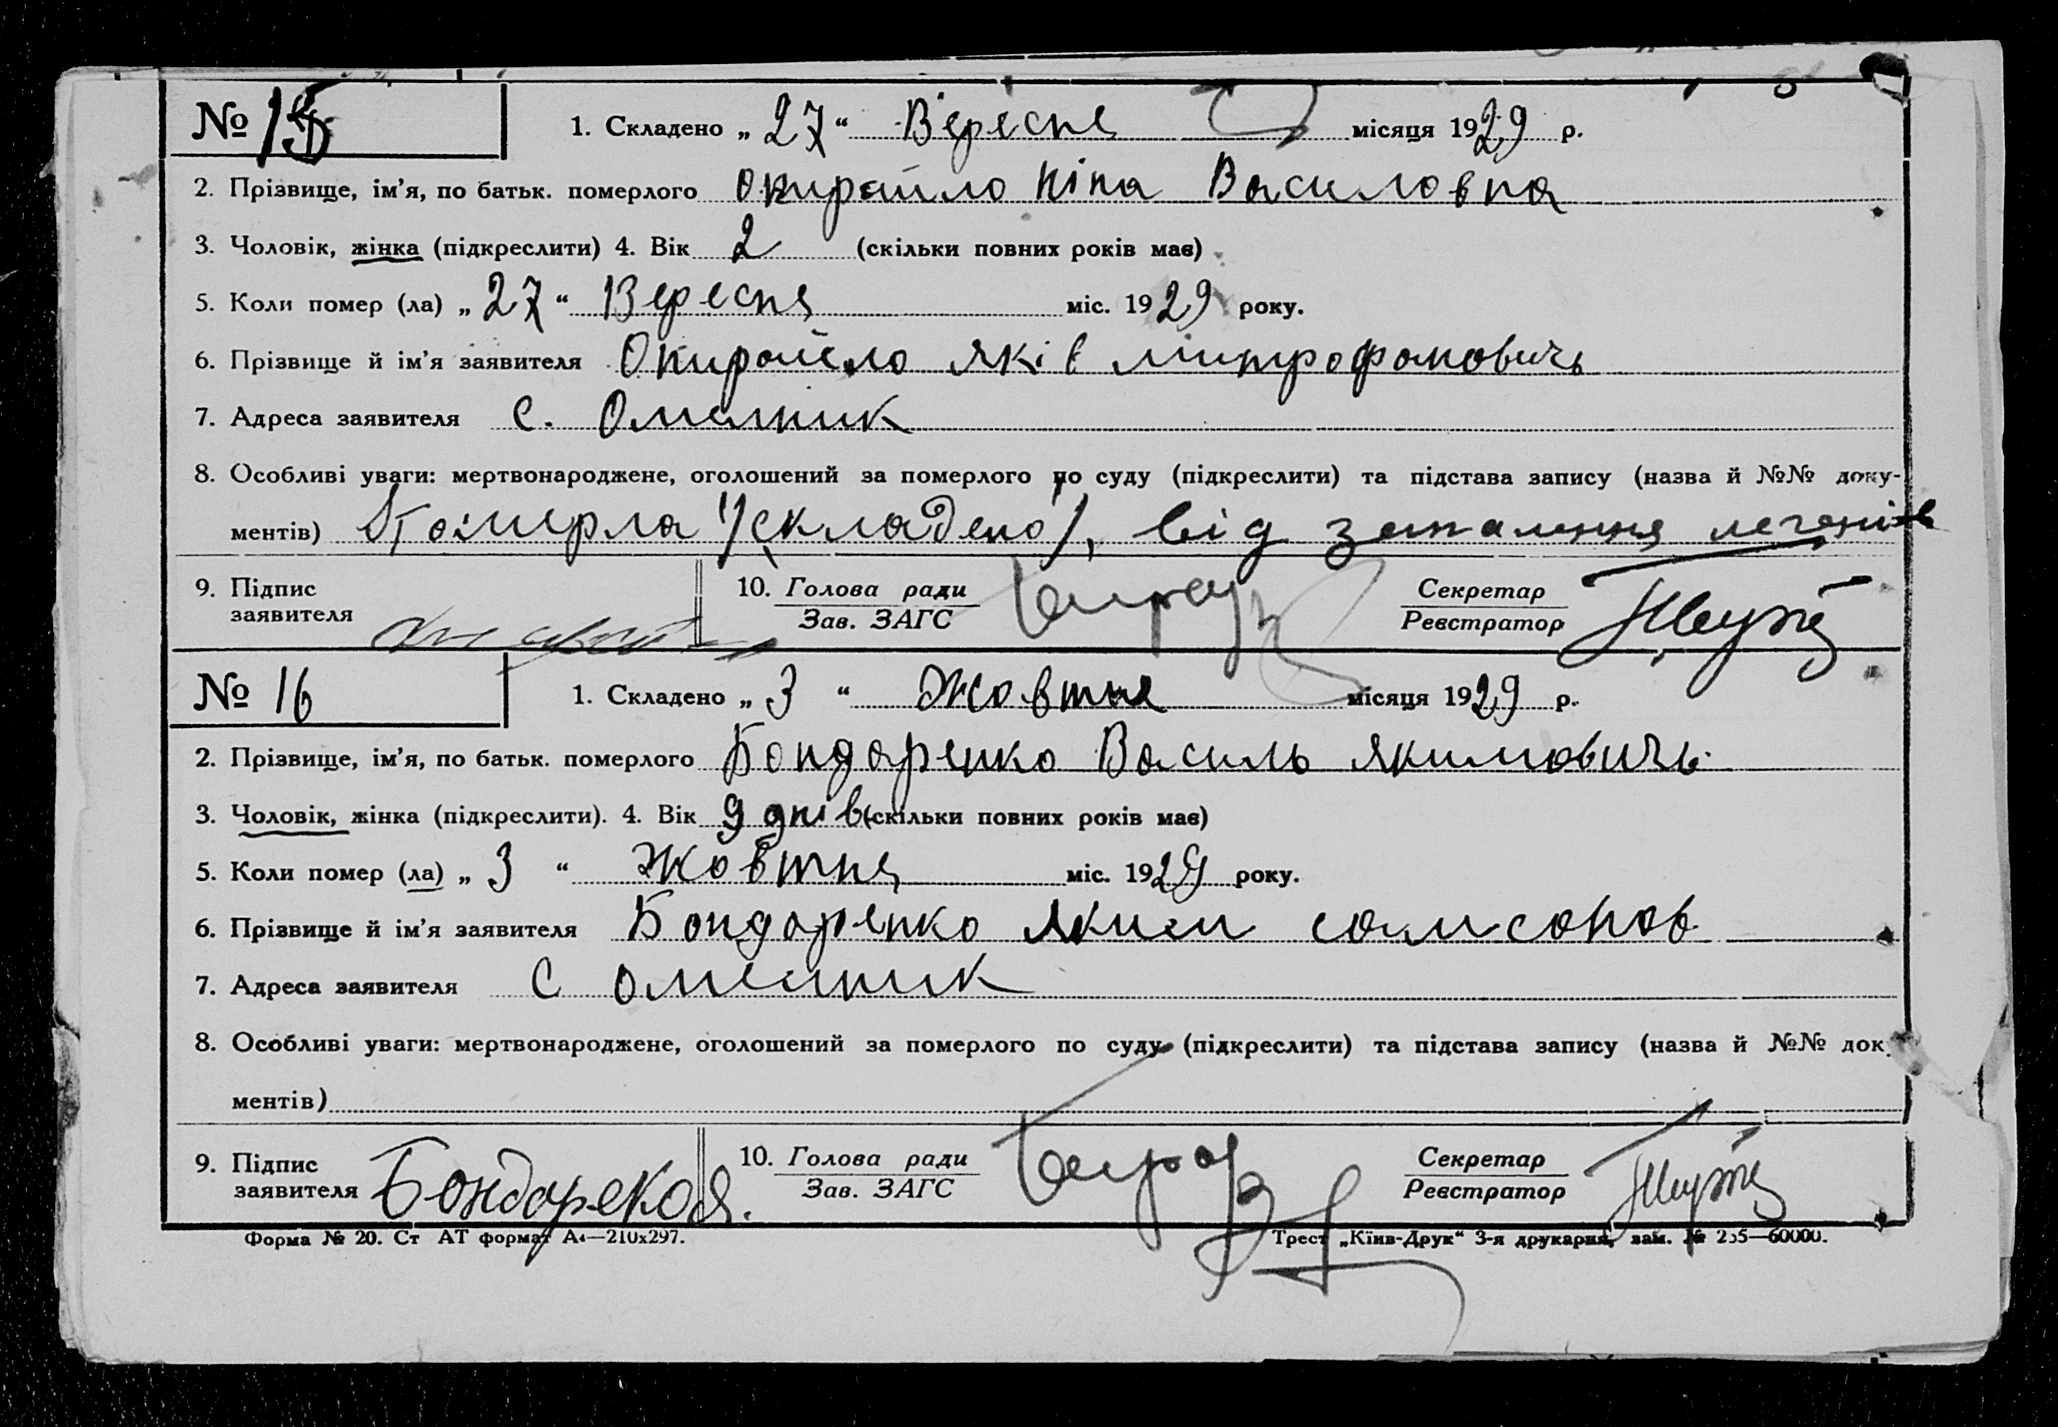 № 15 1. Складено „ 27 “ Вересня місяця 1929 р.
2. Прізвище, ім’я, по батьк. померлого Опирайло Ніна Василовна
3. Чоловік, жінка (підкреслити) 4. Вік 2 (скільки повних років має)
5. Коли помер (ла) „ 27 “ Вересня міс. 1929 року.
6. Прізвище й ім’я заявителя Опирайло Яків митрофановичь
7. Адреса заявителя с. Омелник
8. Особливі уваги: мертвонароджене, оголошений за померлого по суду (підкреслити) та підстава запису (назва й №№ доку-
ментів) Померла (складено), від запалення легенів
9. Підпис 10. Голова ради Секретар
заявителя Зав. ЗАГС Реєстратор
№ 16 1. Складено „ 3 “ Жовтня місяця 1929 р.
2. Прізвище, ім’я, по батьк. померлого Бондаренко Василь Якимовичь
3. Чоловік, жінка (підкреслити). 4. Вік 9 днів (скільки повних років має)
5. Коли помер (ла) „ 3 “ Жовтня міс. 1929 року.
6. Прізвище й ім’я заявителя Бондаренко Яким самсонов
7. Адреса заявителя с омелник
8. Особливі уваги: мертвонароджене, оголошений за померлого по суду (підкреслити) та підстава запису (назва й №№ док
ментів)
9. Підпис 10. Голова ради Секретар
заявителя Бондареко Я. Зав. ЗАГС Реєстратор
Форма № 20. Ст АТ формат А4—210х297. Трест „Київ-Друк“ 3-я друкарня, зам. № 255—60000.